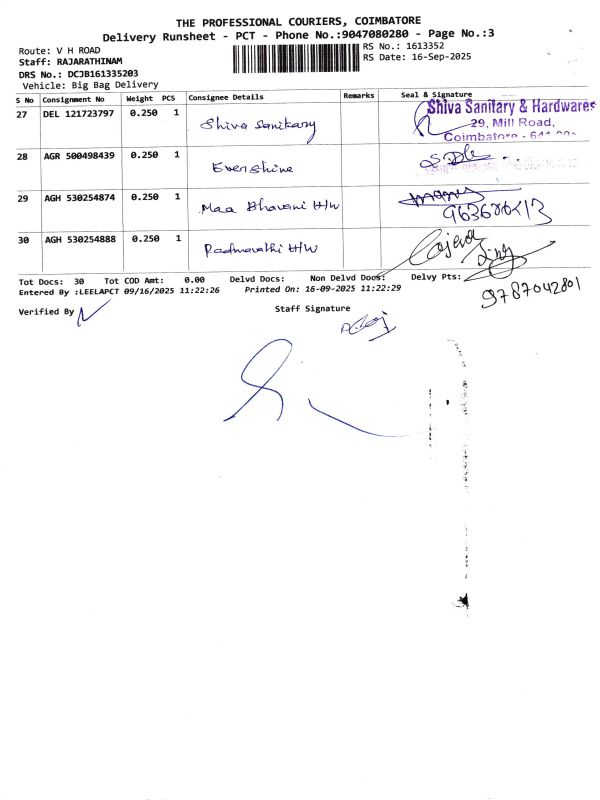 THE PROFESSIONAL COURIERS, COIMBATORE
Delivery Runsheet - PCT - Phone No.:9047080280 - Page No.:3
Route: V H ROAD
RS No.: 1613352
Staff: RAJARATHINAM
RS Date: 16-Sep-2025
DRS No.: DCJB161335203
Vehicle: Big Bag Delivery
S No Consignment No Weight PCS Consignee Details Remarks Seal & Signature
27 DEL 121723797 0.250 1 Shiva Sanitary
Shiva Sanitary & Hardwares
29, Mill Road,
Coimbatore - 641
28 AGR 500498439 0.250 1 Evershine
29 AGH 530254874 0.250 1 Maa Bhavani H/W
30 AGH 530254888 0.250 1 Padmavathi H/W
Tot Docs: 30 Tot COD Amt: 0.00 Delvd Docs: Non Delvd Docs: Delvy Pts:
9787042801
Entered By :LEELAPCT 09/16/2025 11:22:26 Printed On: 16-09-2025 11:22:29
Verified By
Staff Signature